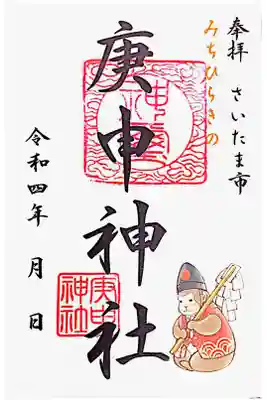 奉拝 さいたま市
みちひらきの
庚申神社
令和四年 月 日
庚申
神社